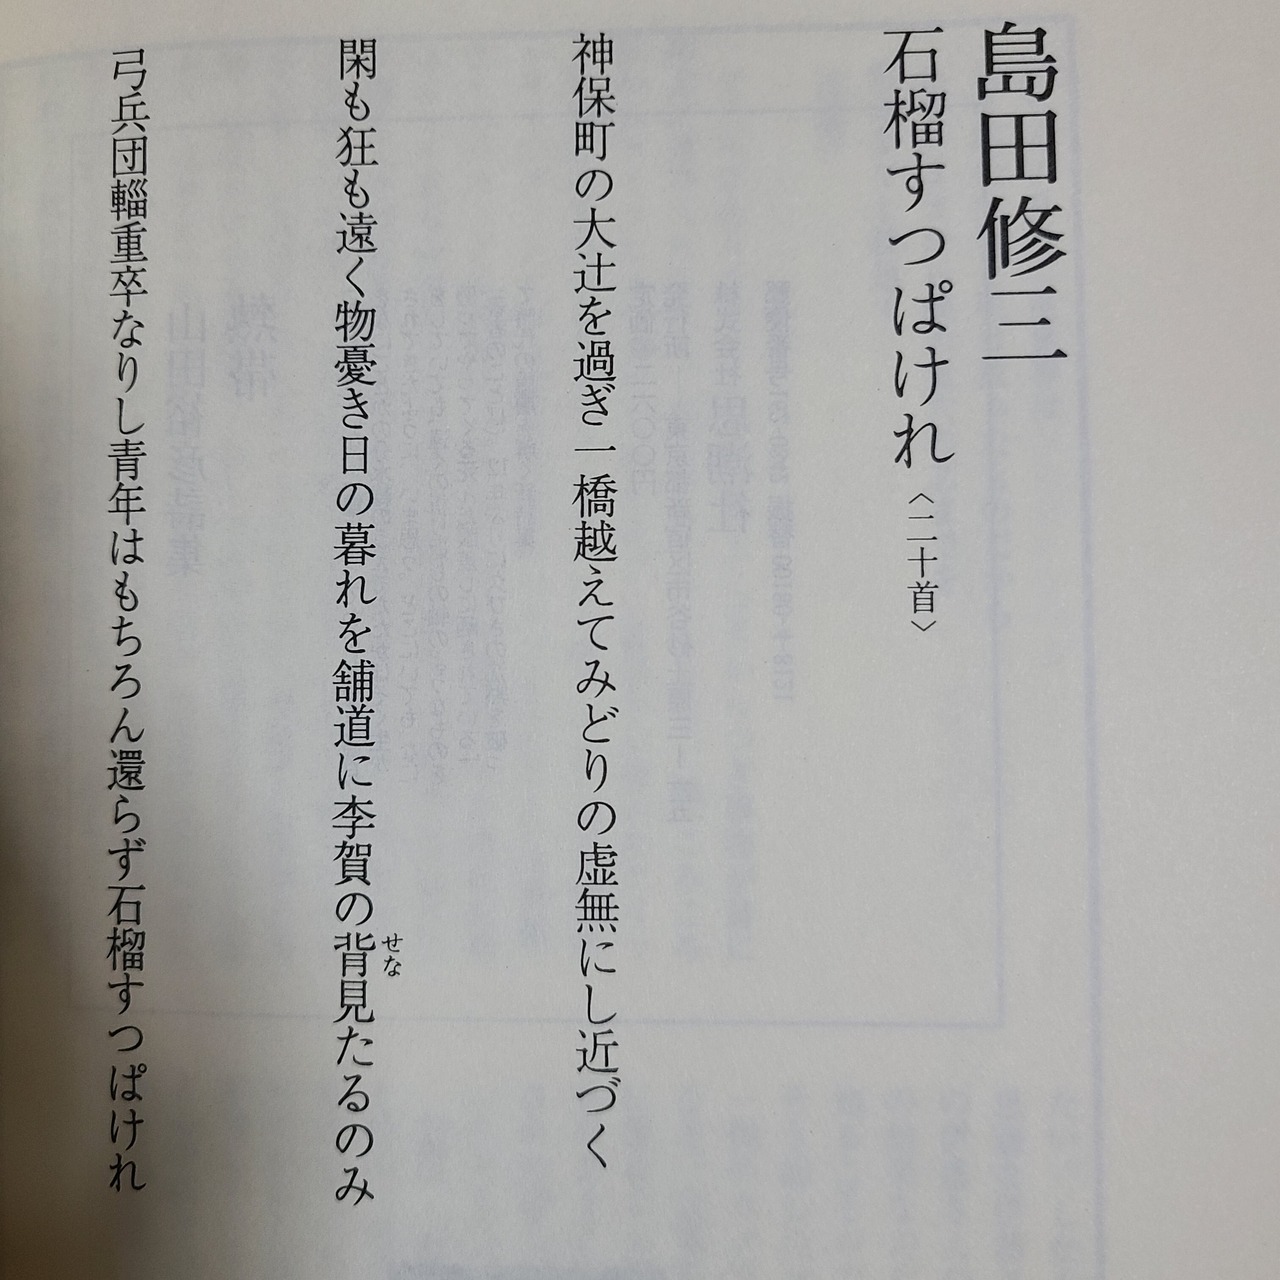 島田修三
石榴すつぱけれ〈二十首〉
神保町の大辻を過ぎ一橋越えてみどりの虚無にし近づく
閑も狂も遠く物憂き日の暮れを舗道に李賀の背見たるのみ
せな
弓兵団輜重卒なりし青年はもちろん還らず石榴すつぱけれ